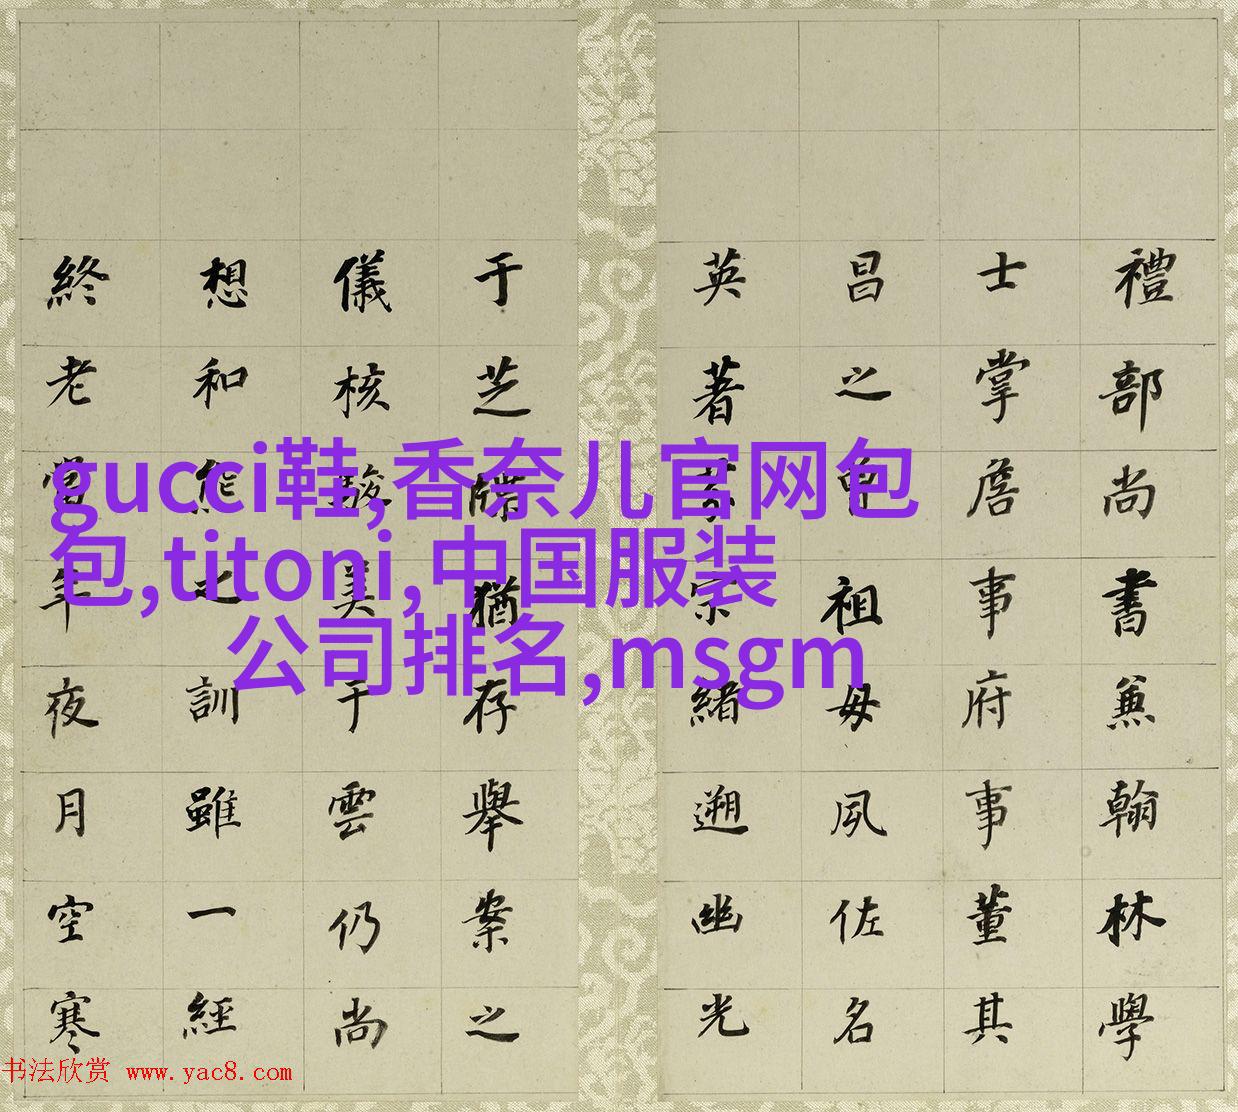 禮部尚書兼翰林學
士掌詹事府事董其
昌之祖母夙佐名
英著宗緒遡幽光
于芝牒猶存舉案之
儀核駿美于雲仍尚
想和熊之訓雖一經
終老當年夜月空寒
gucci鞋,香奈儿官网包
包,titoni,中国服装
公司排名,msgm
书法欣赏 www.yac8.com